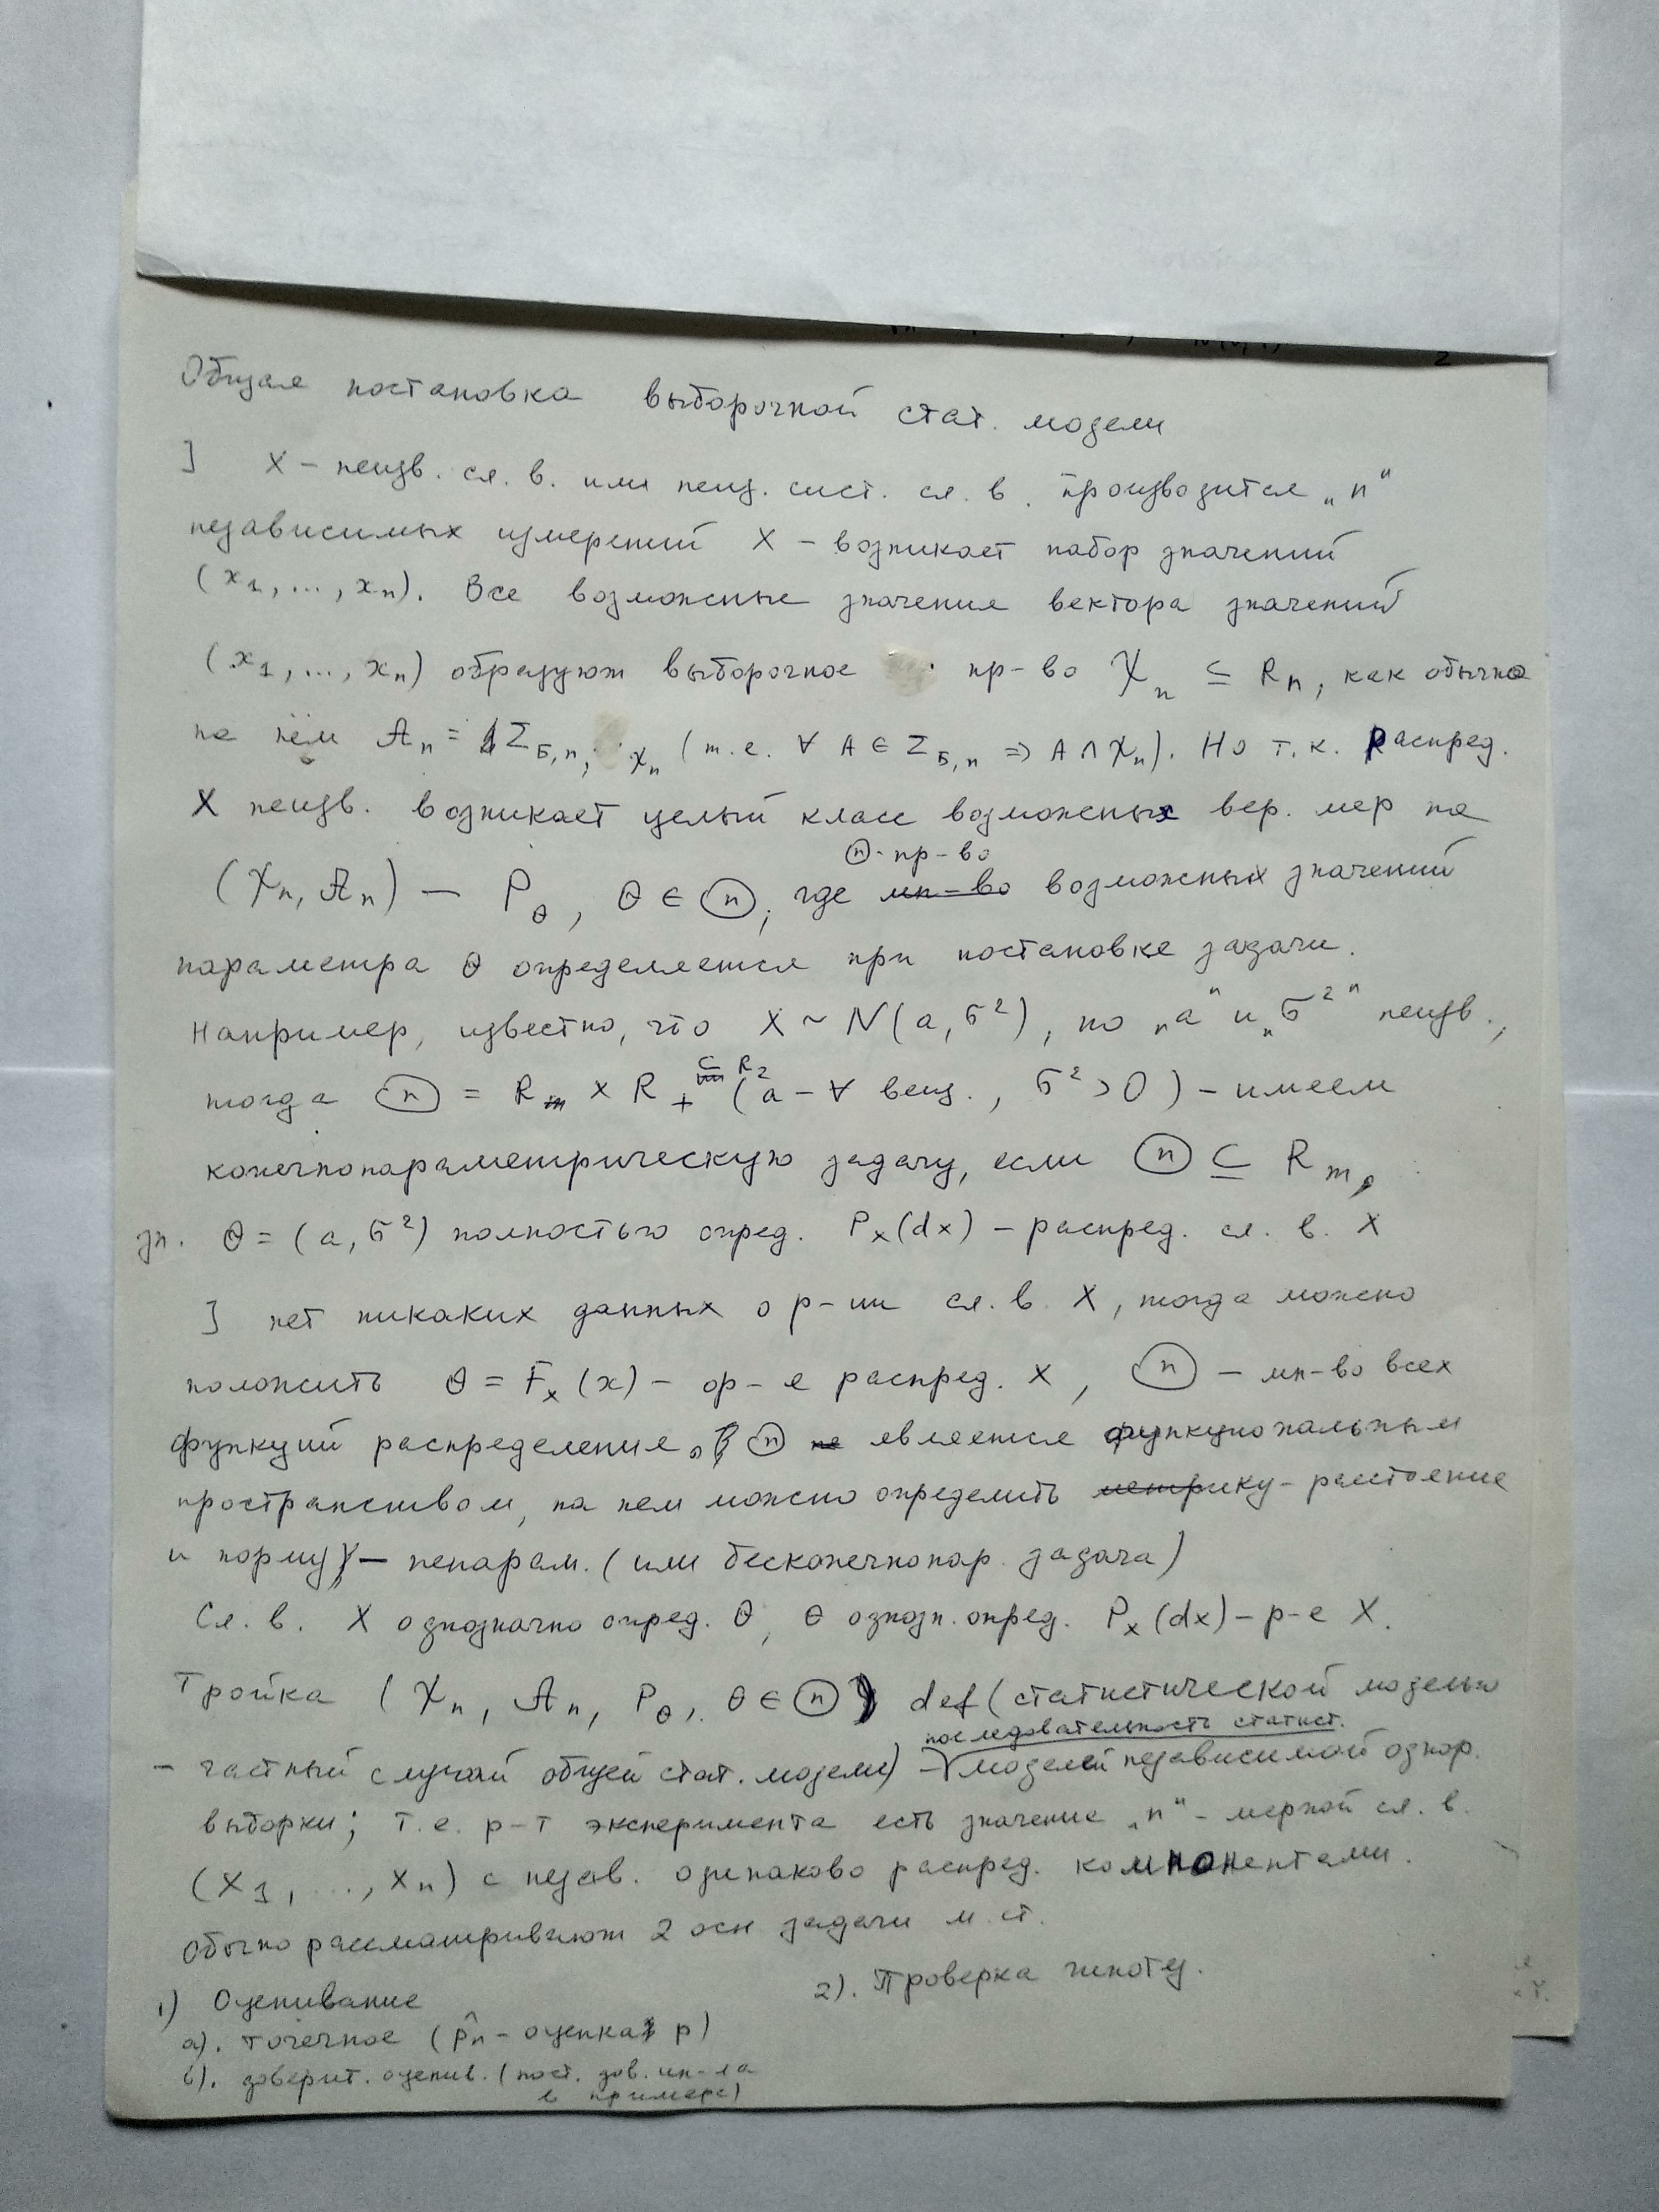 Общая постановка выборочной стат. модели
] X – неизв. сл. в. или неиз. сист. сл. в. производится „n“
независимых измерений X – возникает набор значений
(x₁, ..., xₙ). Все возможные значения вектора значений
(x₁, ..., xₙ) образуют выборочное пр-во 𝒳ₙ ⊆ Rₙ, как обычно
на нём 𝒜ₙ = Σ_Б,n; 𝒳ₙ (т.е. ∀ A ∈ Σ_Б,n ⇒ A ∩ 𝒳ₙ). Но т.к. распред.
X неизв. возникает целый класс возможных вер. мер на
Ⓗ - пр-во
(𝒳ₙ, 𝒜ₙ) — P_θ, θ ∈ Ⓗ, где мн-во возможных значений
параметра θ определяется при постановке задачи.
Например, известно, что X ~ N(a, σ²), но „a“ и „σ²“ неизв.,
тогда Ⓗ = R × R₊ ⊂ R₂ (a – ∀ вещ., σ² > 0) – имеем
конечнопараметрическую задачу, если Ⓗ ⊆ Rₘ,
зн. θ = (a, σ²) полностью опред. Pₓ(dx) – распред. сл. в. X
] нет никаких данных о р-ии сл. в. X, тогда можно
положить θ = Fₓ(x) – ф-я распред. X, Ⓗ – мн-во всех
функций распределения, Ⓗ не является функциональным
пространством, на нем можно определить метрику - расстояние
и норму – непарам. (или бесконечнопар. задача)
Сл. в. X однозначно опред. θ, θ однозн. опред. Pₓ(dx) – р-е X.
Тройка (𝒳ₙ, 𝒜ₙ, P_θ, θ ∈ Ⓗ) def (статистической моделью
последовательность статист.
– частный случай общей стат. модели) – моделей независимой однор.
выборки; т.е. р-т эксперимента есть значение „n“ - мерной сл. в.
(X₁, ..., Xₙ) с незав. одинаково распред. компонентами.
Обычно рассматривают 2 осн задачи м. ст.
1) Оценивание 2). Проверка гипотез.
а). точечное (p̂ₙ – оценка p)
б). доверит. оценив. (пост. дов. ин-ла
в примере)